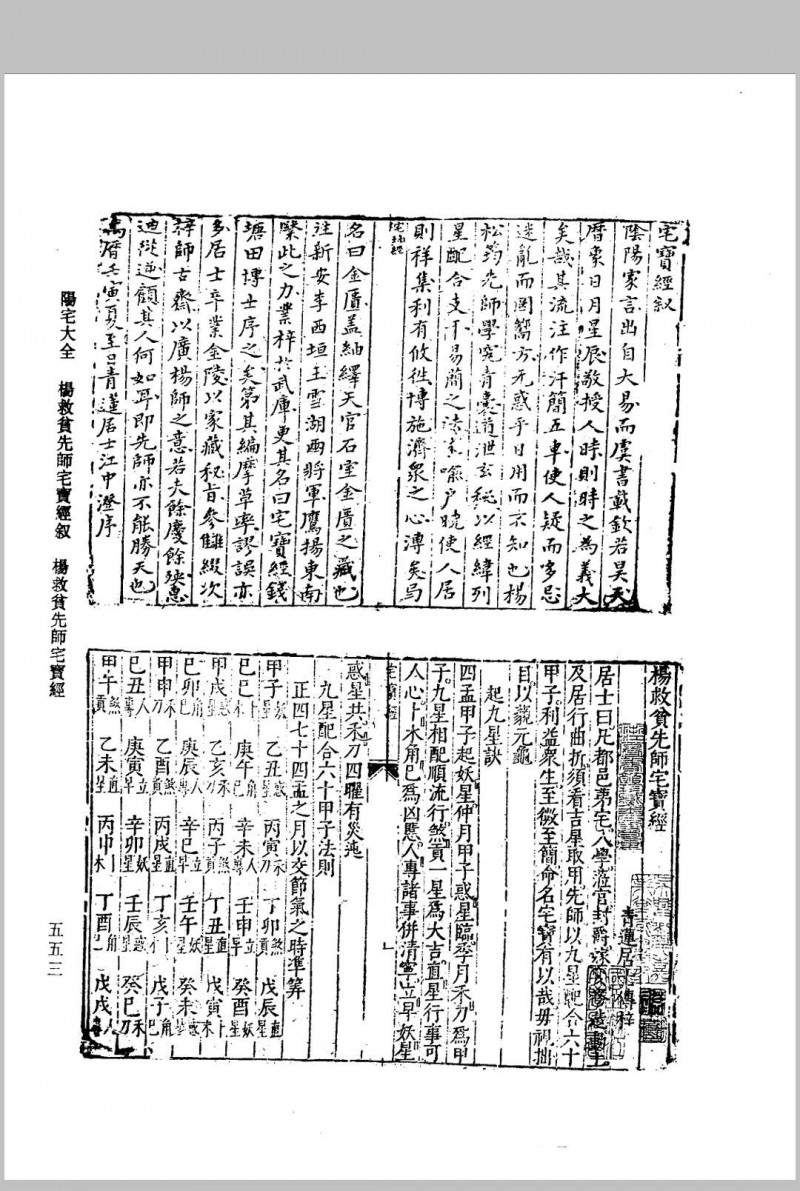 宅寶經叙
陰陽家言出自大易而虞書載欽若昊天
曆象日月星辰敬授人時則時之為義大
矣哉其流注作汗簡五車使人疑而多忌
迷亂而罔嚮方尤惑乎日用而不知也楊
松筠先師學究青囊道泄玄秘以經緯列
星配合支干易簡之法家喻户曉使人居
則祥集利有攸往博施濟衆之心溥矣焉
宅寶經
名曰金匱盖紬繹天官石室金匱之藏也
注新安李西垣王雪湖西將軍鷹揚東南
緊此之力業梓於武庫更其名曰宅寶經錢
塘田博士序之矣第其編摩草率謬誤亦
多居士卒業金陵以家藏秘旨參讎綴次
梓師古齋以廣楊師之意若夫餘慶餘殃惠
迪從逆顧其人何如耳即先師亦不能勝天也
萬曆壬寅夏至日青蓮居士江中澄序
楊救貧先師宅寶經
青蓮居 傳梓
居士曰凡都邑第宅入學蒞官封爵
及居行曲折須看吉星取用先師以九星配合六十
甲子利益衆生至微至簡命名宅寶有以哉毋視拙
目以藐元龜
起九星訣
四孟甲子起妖星仲月甲子惑星臨季月禾刀爲甲
子九星相配順流行煞貢一星爲大吉直星行事可
人心卜木角巳爲凶應人專諸事併清寧立早妖星
宅寶經
惑星共禾刀四曜有災迍
九星配合六十甲子法則
正四七十四孟之月以交節氣之時準筭
甲子妖星 乙丑惑星 丙寅禾刀 丁卯煞貢 戊辰直星
己巳卜木 庚午角巳 辛未人專 壬申立早 癸酉妖星
甲戌惑星 乙亥禾刀 丙子煞貢 丁丑直星 戊寅卜木
己卯角巳 庚辰人專 辛巳立早 壬午妖星 癸未惑星
甲申禾刀 乙酉煞貢 丙戌直星 丁亥卜木 戊子角巳
己丑人專 庚寅立早 辛卯妖星 壬辰惑星 癸巳禾刀
甲午煞貢 乙未直星 丙申卜木 丁酉角巳 戊戌人專
陽宅大全 楊救貧先師宅寶經叙 楊救貧先師宅寶經
五五三